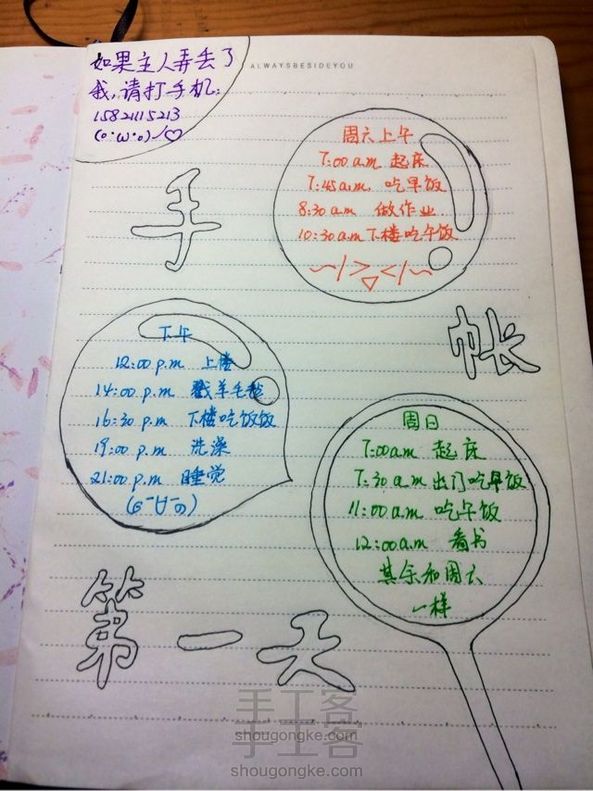 如果主人弄丢了
我,请打手机:
15821115213
(o·ω·o)/♡
ALWAYSBESIDEYOU
周六上午
7:00 a.m 起床
7:45 a.m. 吃早饭
8:30 a.m 做作业
10:30 a.m 下楼吃午饭
手
帐
下午
12:00 p.m 上楼
14:00 p.m 戳羊毛毡
16:30 p.m 下楼吃饭饭
19:00 p.m 洗澡
21:00 p.m 睡觉
周日
7:00 a.m 起床
7:30 a.m 出门吃早饭
11:00 a.m 吃午饭
12:00 a.m 看书
其余和周六
一样
第一天
手工客
shougongke.com
手工客
shougongke.com